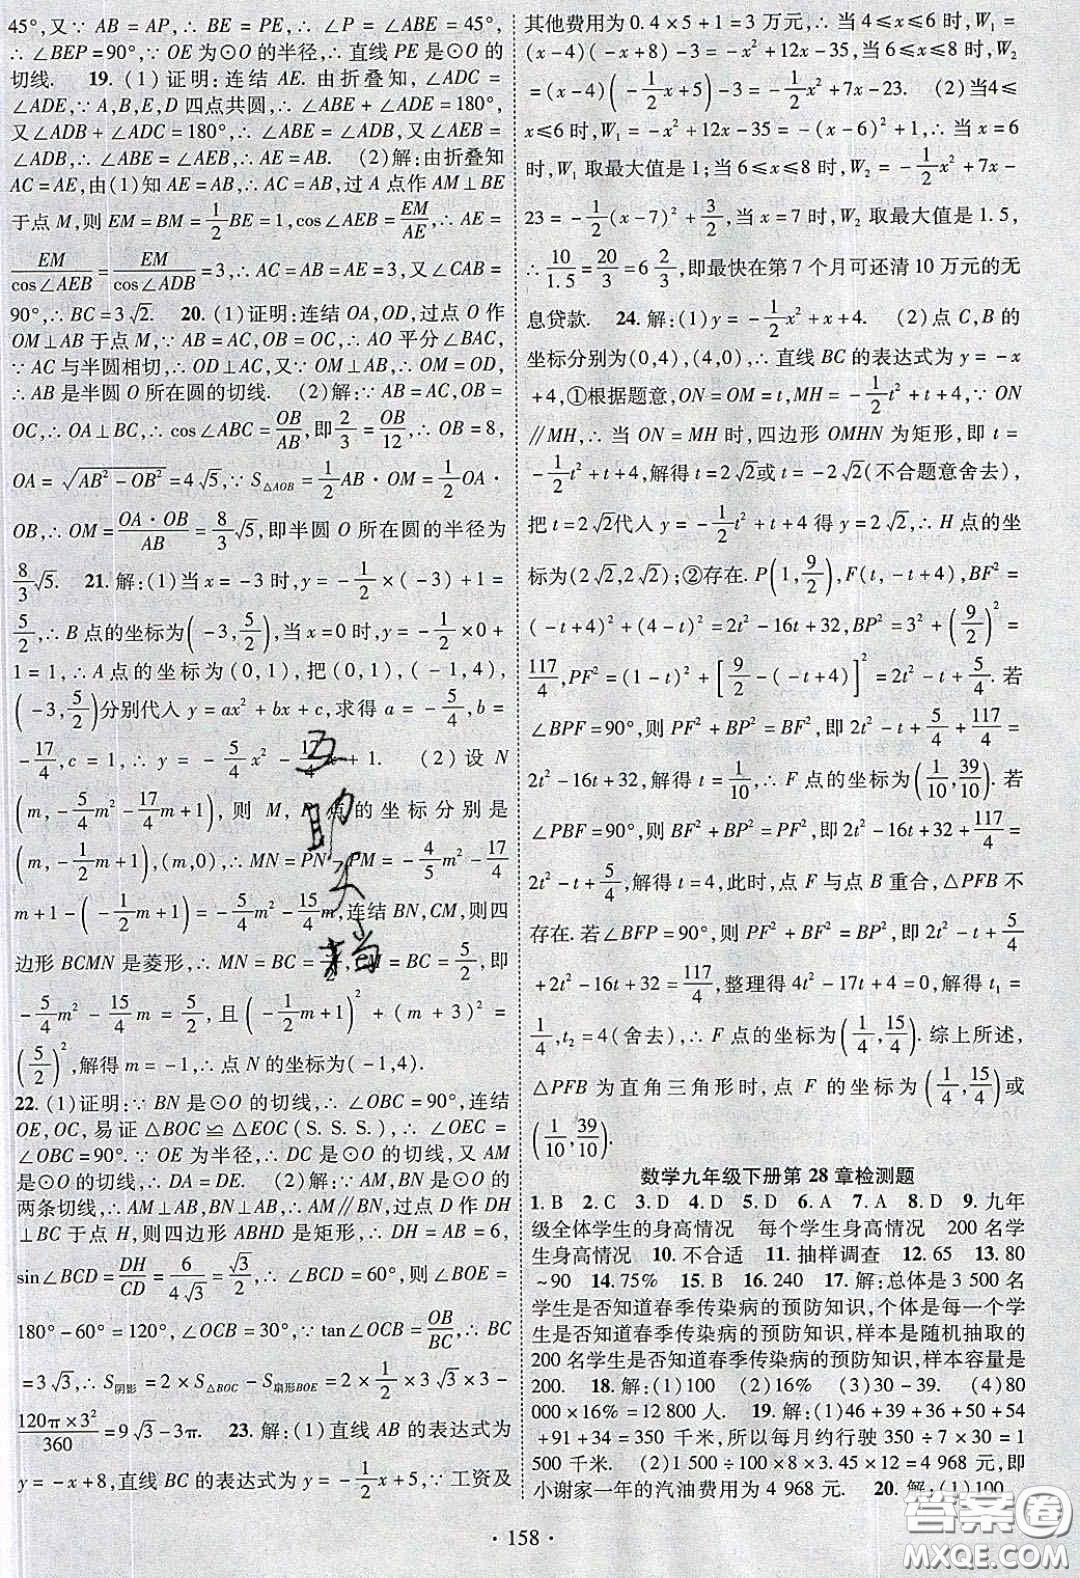 45°,又∵ AB = AP,∴ BE = PE,∴ ∠P = ∠ABE = 45°,
∴ ∠BEP = 90°,∵ OE 为⊙O 的半径,∴ 直线 PE 是⊙O 的
切线. 19. (1) 证明:连结 AE. 由折叠知, ∠ADC =
∠ADE,∵ A,B,E,D 四点共圆,∴ ∠ABE + ∠ADE = 180°,
又∠ADB + ∠ADC = 180°,∴ ∠ABE = ∠ADB,又∠AEB =
∠ADB,∴ ∠ABE = ∠AEB,∴ AE = AB. (2)解:由折叠知
AC = AE,由(1)知 AE = AB,∴ AC = AB,过 A 点作 AM⊥BE
于点 M,则 EM = BM = 1/2 BE = 1,cos∠AEB = EM/AE,∴ AE =
EM/cos∠AEB = EM/cos∠ADB = 3,∴ AC = AB = AE = 3,又∠CAB =
90°,∴ BC = 3√2. 20. (1)证明:连结 OA,OD,过点 O 作
OM⊥AB 于点 M,∵ AB = AC,OB = OC,∴ AO 平分∠BAC,
∵ AC 与半圆相切,∴ OD⊥AC,又∵ OM⊥AB,∴ OM = OD,
∴ AB 是半圆 O 所在圆的切线. (2)解:∵ AB = AC,OB =
OC,∴ OA⊥BC,∴ cos∠ABC = OB/AB,即 2/3 = OB/12,∴ OB = 8,
OA = √(AB² - OB²) = 4√5,∵ S△AOB = 1/2 AB · OM = 1/2 OA ·
OB,∴ OM = OA · OB/AB = 8/3 √5,即半圆 O 所在圆的半径为
8/3 √5. 21. 解:(1)当 x = -3 时,y = -1/2 × (-3) + 1 =
5/2,∴ B 点的坐标为(-3, 5/2),当 x = 0 时,y = -1/2 × 0 +
1 = 1,∴ A 点的坐标为(0,1),把(0,1),(-1,4),
(-3, 5/2)分别代入 y = ax² + bx + c,求得 a = -5/4,b =
-17/4,c = 1,∴ y = -5/4 x² - 17/4 x + 1. (2) 设 N
(m, -5/4 m² - 17/4 m + 1), 则 M, P 点的坐标分别是
(m, -1/2 m + 1),(m,0),∴ MN = PN - PM = -4/5 m² - 17/4
m + 1 - (-1/2 m + 1) = -5/4 m² - 15/4 m,连结 BN,CM,则四
边形 BCMN 是菱形,∴ MN = BC = 5/2,CM = BC = 5/2,即
-5/4 m² - 15/4 m = 5/2,且(-1/2 m + 1)² + (m + 3)² =
(5/2)²,解得 m = -1,∴ 点 N 的坐标为(-1,4).
22. (1)证明:∵ BN 是⊙O 的切线,∴ ∠OBC = 90°,连结
OE,OC,易证 △BOC ≌ △EOC(S. S. S.),∴ ∠OEC =
∠OBC = 90°. ∵ OE 为半径,∴ DC 是⊙O 的切线,又 AM
是⊙O 的切线,∴ DA = DE. (2)解:∵ AM,BN 是⊙O 的
两条切线,∴ AM⊥AB,BN⊥AB,∴ AM∥BN,过点 D 作 DH
⊥BC 于点 H,则四边形 ABHD 是矩形,∴ DH = AB = 6,
sin∠BCD = DH/CD = 6/4√3 = √3/2,∴ ∠BCD = 60°,则∠BOE =
180° - 60° = 120°,∠OCB = 30°,∵ tan∠OCB = OB/BC,∴ BC
= 3√3,∴ S阴影 = 2 × S△BOC - S扇形BOE = 2 × 1/2 × 3 × 3√3 -
120π × 3²/360 = 9√3 - 3π. 23. 解:(1)直线 AB 的表达式为
y = -x + 8,直线 BC 的表达式为 y = -1/2 x + 5,∵ 工资及
其他费用为 0.4 × 5 + 1 = 3 万元,∴ 当 4≤x≤6 时,W₁ =
(x - 4)(-x + 8) - 3 = -x² + 12x - 35,当 6≤x≤8 时,W₂
= (x - 4)(-1/2 x + 5) - 3 = -1/2 x² + 7x - 23. (2)当4≤
x≤6 时,W₁ = -x² + 12x - 35 = -(x - 6)² + 1,∴ 当 x = 6
时,W₁ 取最大值是 1;当 6≤x≤8 时,W₂ = -1/2 x² + 7x -
23 = -1/2 (x - 7)² + 3/2,当 x = 7 时,W₂ 取最大值是 1.5,
∴ 10/1.5 = 20/3 = 6 2/3,即最快在第 7 个月可还清 10 万元的无
息贷款. 24. 解:(1)y = -1/2 x² + x + 4. (2)点 C,B 的
坐标分别为(0,4),(4,0),∴ 直线 BC 的表达式为 y = -x
+4,①根据题意,ON = OM = t,MH = -1/2 t² + t + 4,∵ ON
∥MH,∴ 当 ON = MH 时,四边形 OMHN 为矩形,即 t =
-1/2 t² + t + 4,解得 t = 2√2或 t = -2√2(不合题意舍去),
把 t = 2√2代入 y = -1/2 t² + t + 4 得 y = 2√2,∴ H 点的坐
标为(2√2,2√2);②存在. P(1, 9/2),F(t, -t + 4),BF² =
(-t + 4)² + (4 - t)² = 2t² - 16t + 32,BP² = 3² + (9/2)² =
117/4,PF² = (1 - t)² + [9/2 - (-t + 4)]² = 2t² - t + 5/4. 若
∠BPF = 90°,则 PF² + BP² = BF²,即 2t² - t + 5/4 + 117/4 =
2t² - 16t + 32,解得 t = 1/10,∴ F 点的坐标为(1/10, 39/10). 若
∠PBF = 90°,则 BF² + BP² = PF²,即 2t² - 16t + 32 + 117/4 =
2t² - t + 5/4,解得 t = 4,此时,点 F 与点 B 重合,△PFB 不
存在. 若∠BFP = 90°,则 PF² + BF² = BP²,即 2t² - t + 5/4
+ 2t² - 16t + 32 = 117/4,整理得 4t² - 17t + 4 = 0,解得 t₁ =
1/4,t₂ = 4(舍去),∴ F 点的坐标为(1/4, 15/4). 综上所述,
△PFB 为直角三角形时,点 F 的坐标为(1/4, 15/4)或
(1/10, 39/10).
数学九年级下册第 28 章检测题
1. B 2. C 3. D 4. D 5. D 6. A 7. A 8. D 9. 九年
级全体学生的身高情况 每个学生身高情况 200 名学
生身高情况 10. 不合适 11. 抽样调查 12. 65 13. 80
~90 14. 75% 15. B 16. 240 17. 解:总体是 3 500 名
学生是否知道春季传染病的预防知识,个体是每一个学
生是否知道春季传染病的预防知识,样本是随机抽取的
200 名学生是否知道春季传染病的预防知识,样本容量是
200. 18. 解:(1)100 (2)16% (3)30 - 39. (4)80
000 × 16% = 12 800 人. 19. 解:(1)46 + 39 + 36 + 50 + 54
+ 91 + 34 = 350 千米,所以每月约行驶 350 ÷ 7 × 30 = 1
500 千米. (2)1 500 ÷ 100 × 8 × 3.45 × 12 = 4 968 元,即
小谢家一年的汽油费用为 4 968 元. 20. 解:(1)100
· 158 ·
答案圈
MXQE.COM